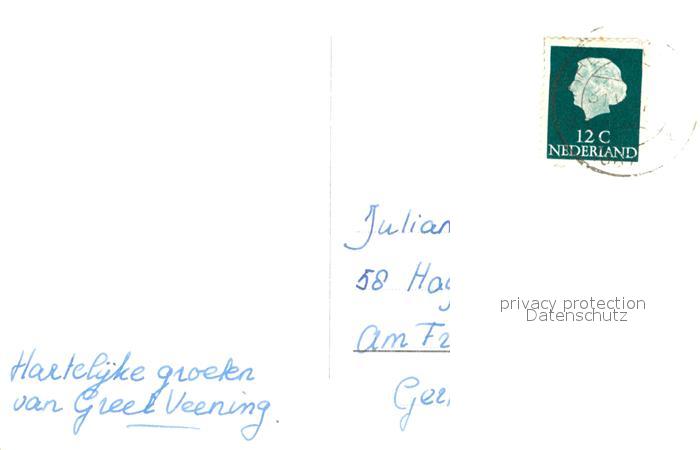 12 C
NEDERLAND
Julian
58 Hag
Am Fr
Ger
privacy protection
Datenschutz
Hartelijke groeten
van Greet Veening.